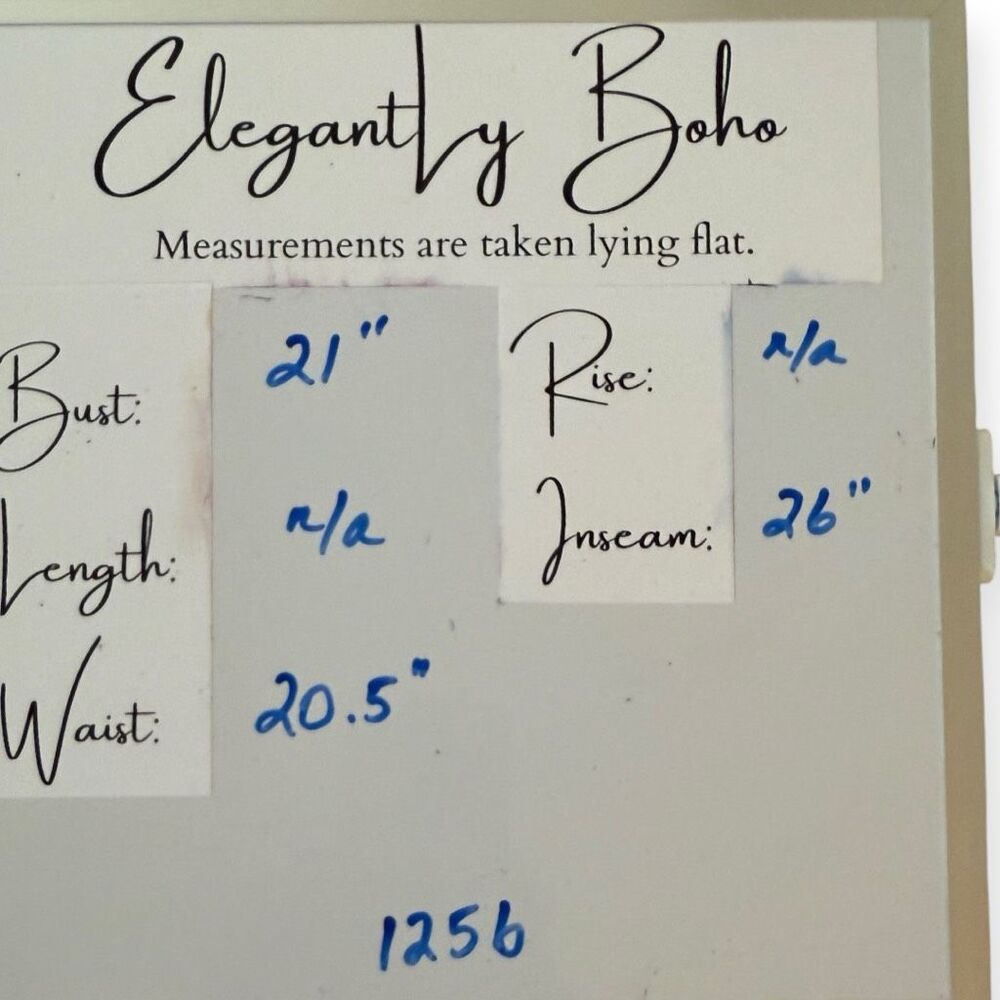 Elegantly Boho
Measurements are taken lying flat.
Bust: 21"
Rise: n/a
Length: n/a
Inseam: 26"
Waist: 20.5"
1256